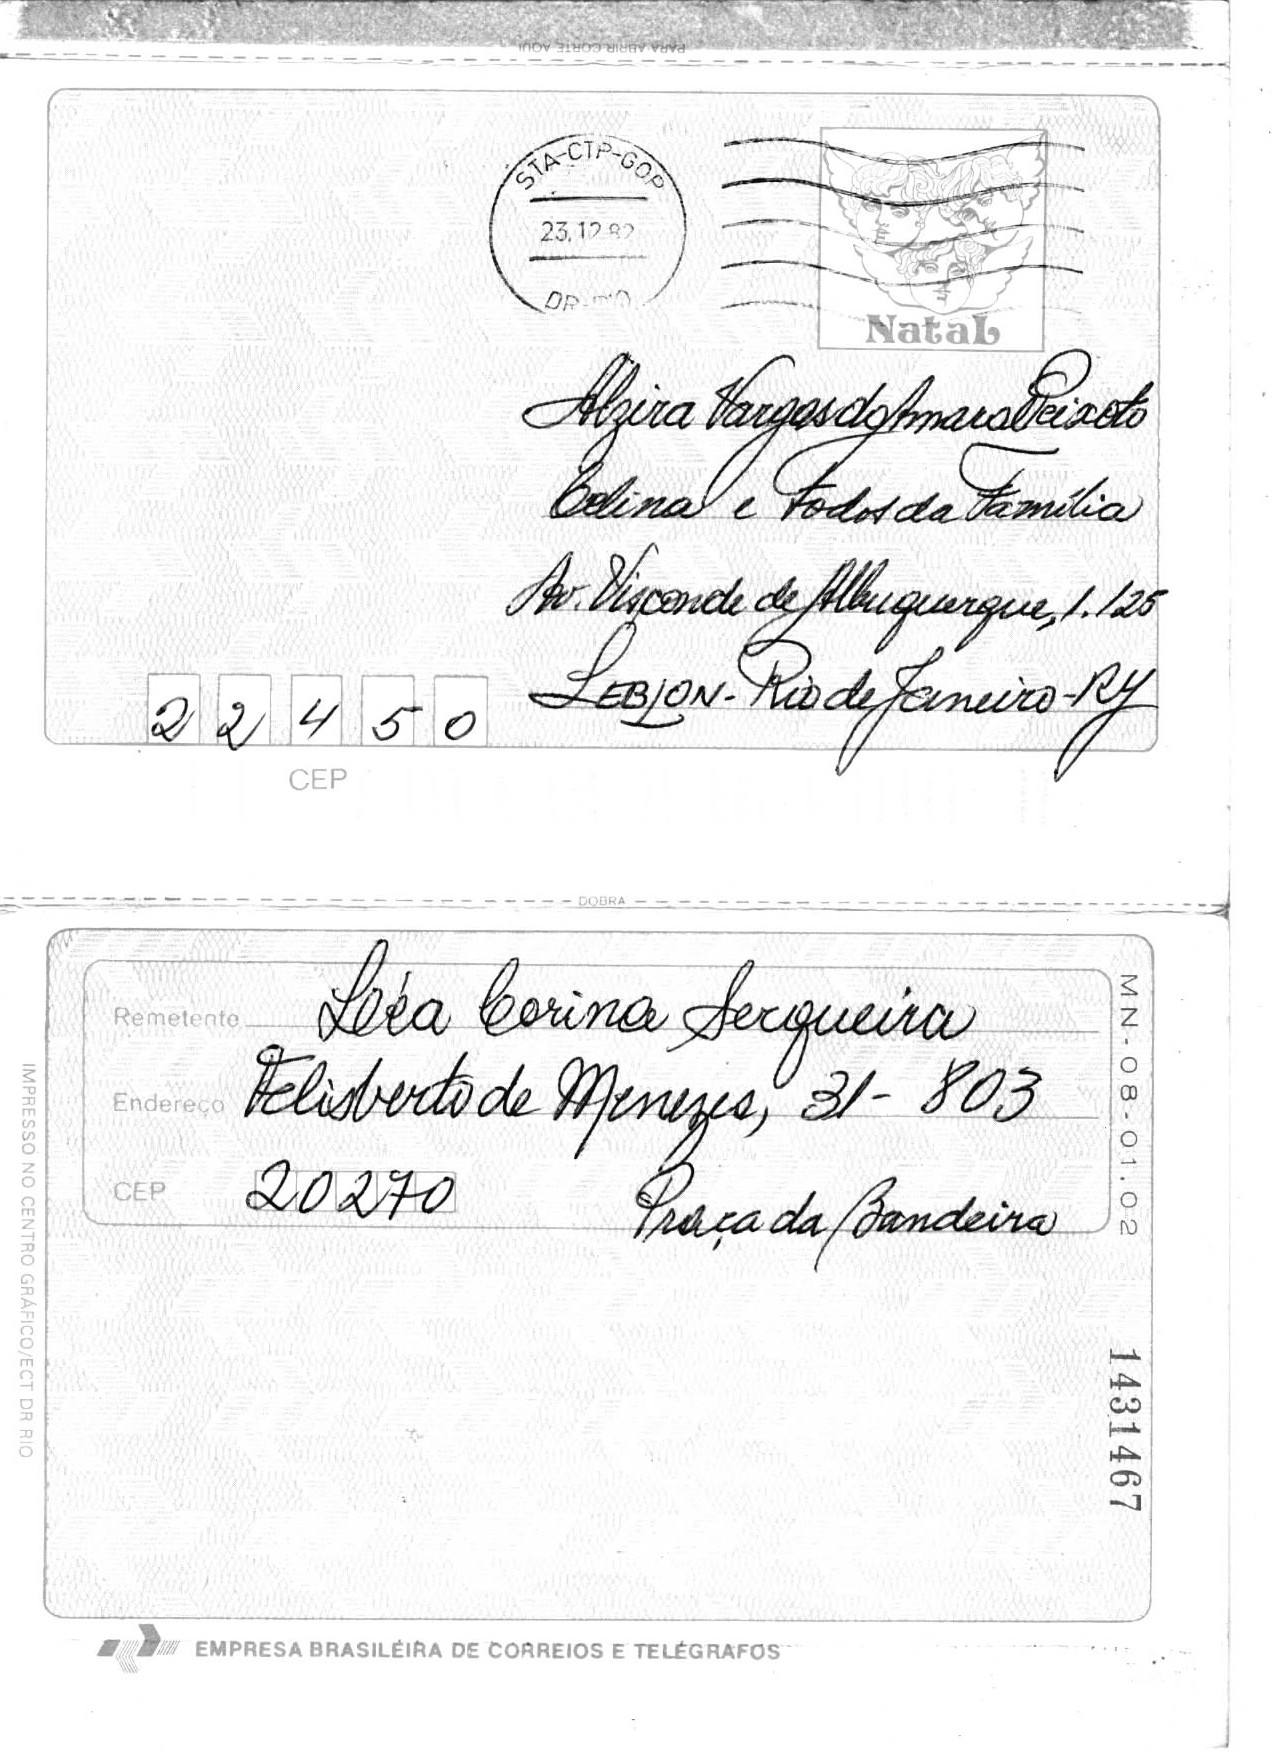 PARA ABRIR CORTE AQUI
STA-CTP-GOP
23.12.82
DR-RIO
Natal
Alzira Vargas do Amaral Peixoto
Celina e Todos da Família
Av. Visconde de Albuquerque, 1.125
LEBLON - Rio de Janeiro - RJ
22450
CEP
DOBRA
Remetente Léa Corina Serqueira
Endereço Felisberto de Menezes, 31 - 803
CEP 20270 Praça da Bandeira
MN-08-01.02
1431467
IMPRESSO NO CENTRO GRÁFICO/ECT DR RIO
EMPRESA BRASILEIRA DE CORREIOS E TELÉGRAFOS